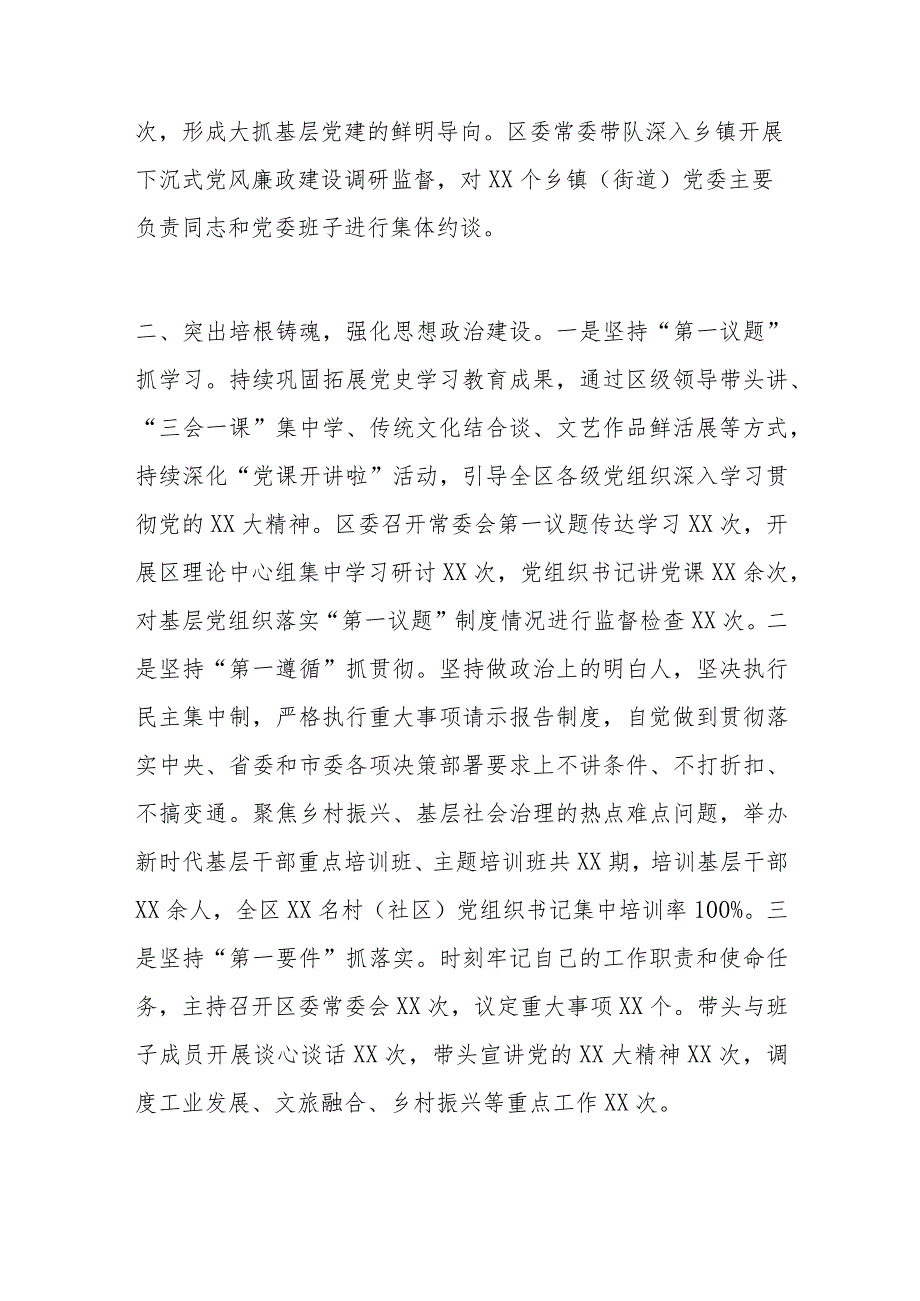 次，形成大抓基层党建的鲜明导向。区委常委带队深入乡镇开展
下沉式党风廉政建设调研监督，对 XX 个乡镇（街道）党委主要
负责同志和党委班子进行集体约谈。
二、突出培根铸魂，强化思想政治建设。一是坚持“第一议题”
抓学习。持续巩固拓展党史学习教育成果，通过区级领导带头讲、
“三会一课”集中学、传统文化结合谈、文艺作品鲜活展等方式，
持续深化“党课开讲啦”活动，引导全区各级党组织深入学习贯
彻党的 XX 大精神。区委召开常委会第一议题传达学习 XX 次，开
展区理论中心组集中学习研讨 XX 次，党组织书记讲党课 XX 余次，
对基层党组织落实“第一议题”制度情况进行监督检查 XX 次。二
是坚持“第一遵循”抓贯彻。坚持做政治上的明白人，坚决执行
民主集中制，严格执行重大事项请示报告制度，自觉做到贯彻落
实中央、省委和市委各项决策部署要求上不讲条件、不打折扣、
不搞变通。聚焦乡村振兴、基层社会治理的热点难点问题，举办
新时代基层干部重点培训班、主题培训班共 XX 期，培训基层干部
XX 余人，全区 XX 名村（社区）党组织书记集中培训率 100%。三
是坚持“第一要件”抓落实。时刻牢记自己的工作职责和使命任
务，主持召开区委常委会 XX 次，议定重大事项 XX 个。带头与班
子成员开展谈心谈话 XX 次，带头宣讲党的 XX 大精神 XX 次，调
度工业发展、文旅融合、乡村振兴等重点工作 XX 次。